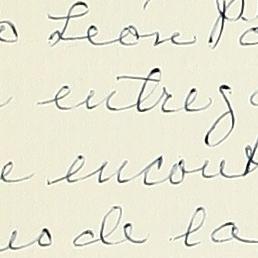 o León P
entreg
e encont
os de la